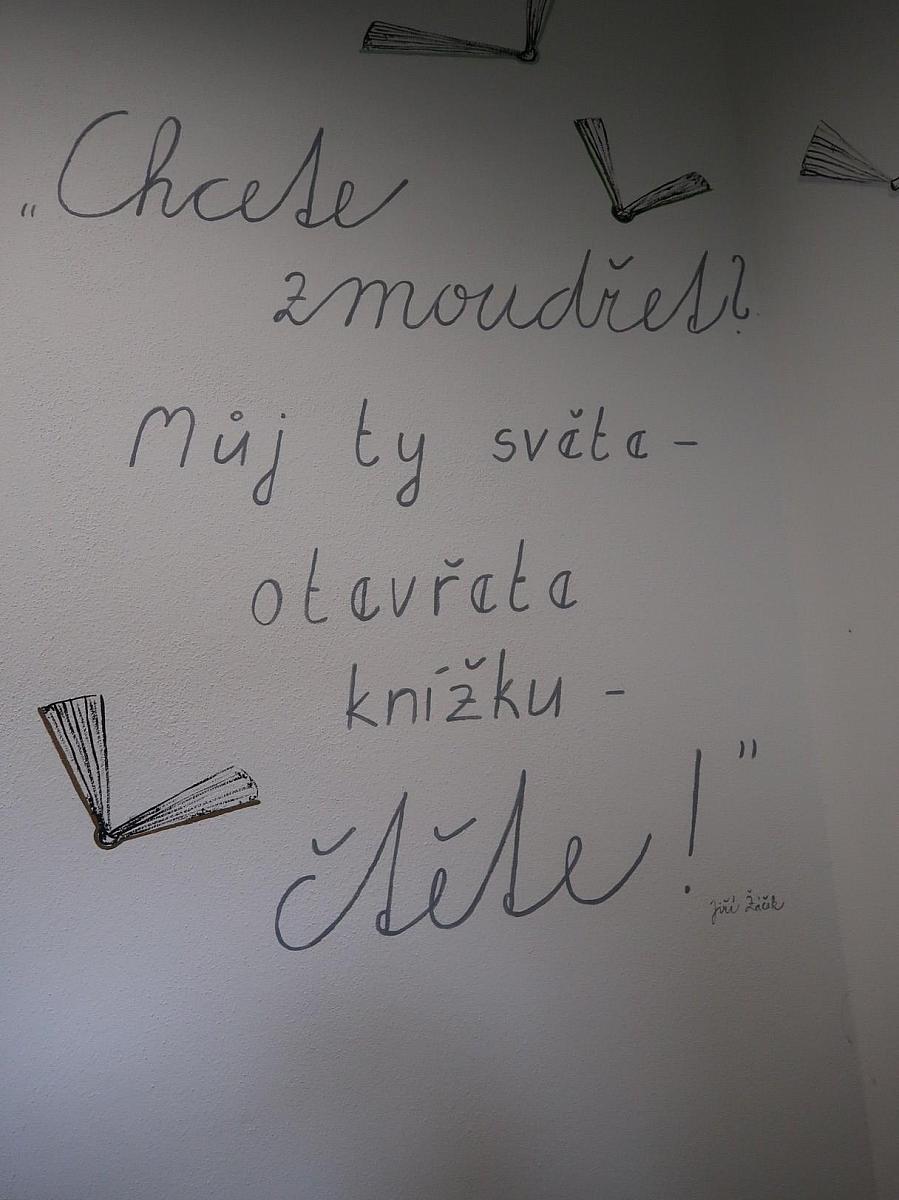 "Chcete
zmoudřet?
Můj ty světe -
otevřete
knížku -
čtěte!"
Jiří Žáček